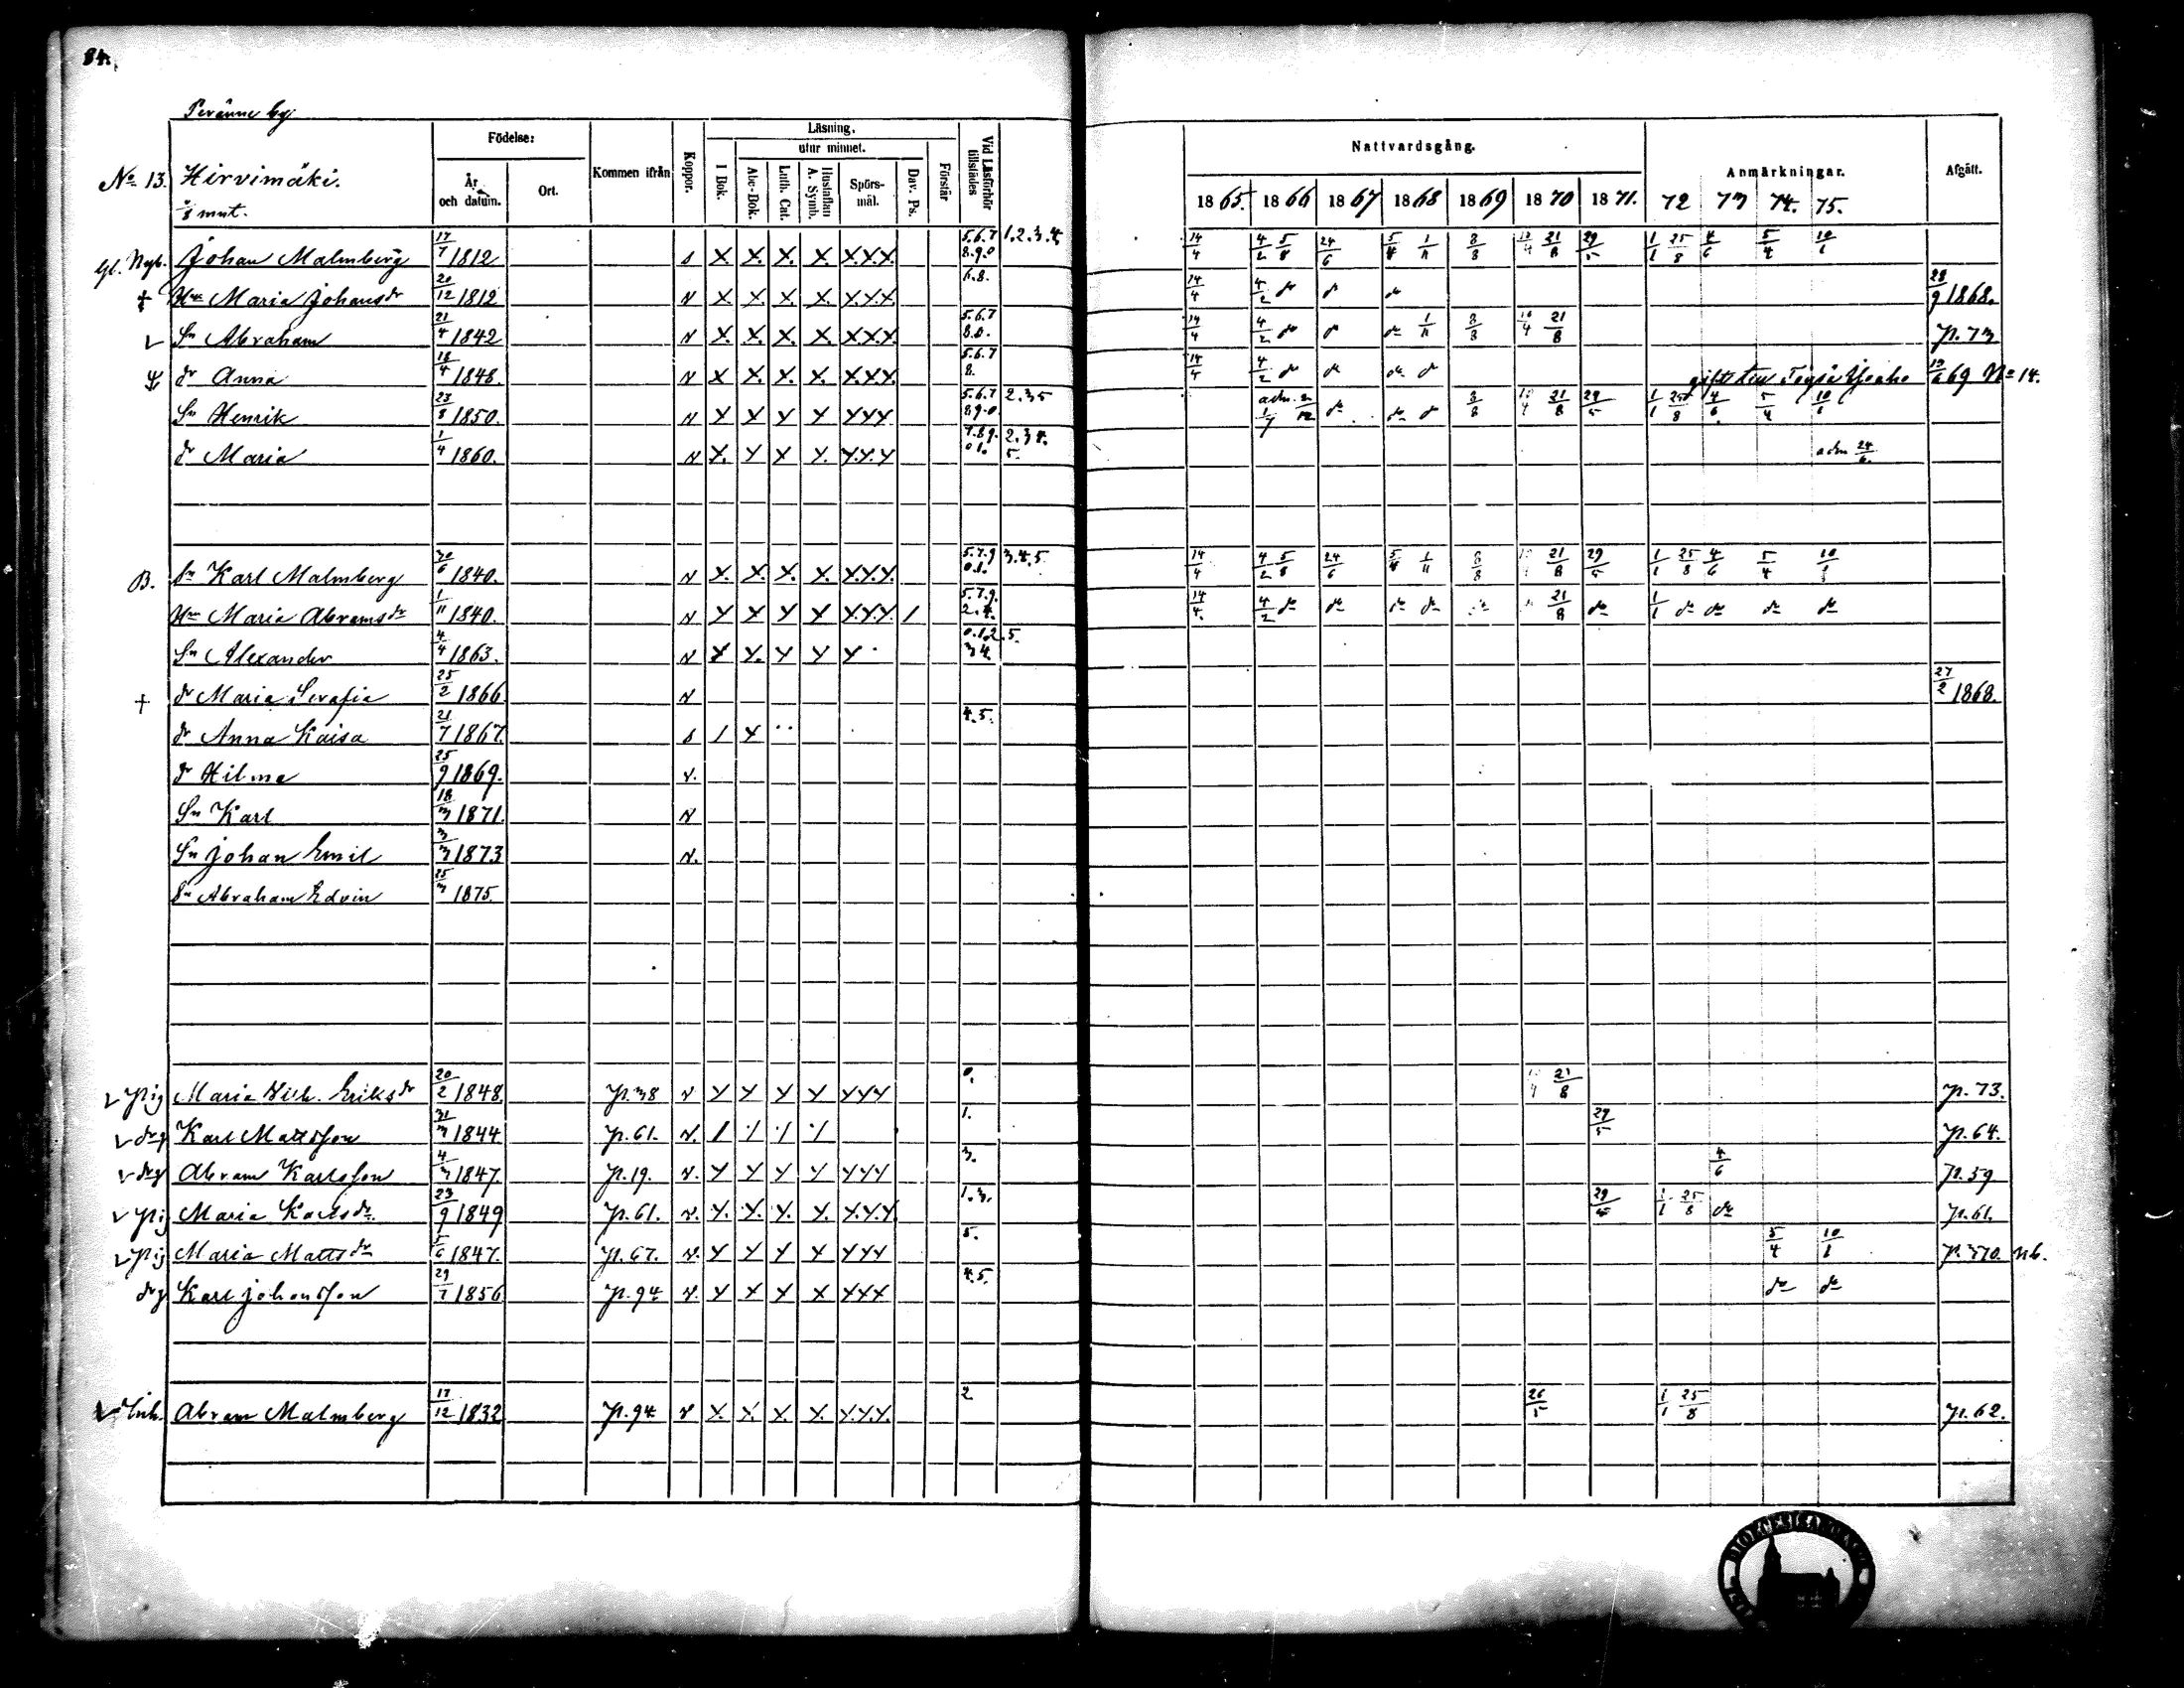 84.
Peränne by
Födelse: Kommen ifrån Koppor. Läsning. utur minnet. Vid Läsförhör tillstädes Nattvardsgång. Anmärkningar. Afgått.
År och datum. Ort. I Bok. Abc-Bok. Luth. Cat. Hustaflan A. Symb. Spörsmål. Dav. Ps. Förstår
1865. 1866 1867 1868 1869 1870 1871. 72 73 74. 75.
No 13. Hirvimäki.
mnt.
Johan Malmberg 17/7 1812 s X. X. X. X. X.X.X. 5.6.7 8.9.0 1.2.3.4. 14/4 4/2 5/8 24/6 5/4 1/11 8/8 21/8 29/5 1/1 25/8 4/6 5/4 10/1
† Hu Maria Johansdr 20/12 1812 N X X. X. X. X.X.X 6.8. 14/4 4/2 do do do 28/9 1868.
Sn Abraham 21/4 1842 N X. X. X. X. X.X.X 5.6.7 8.0. 14/4 4/2 do do do 1/11 8/8 21/8 p. 73
dr Anna 18/4 1848. N X X. X. X. X.X.X. 5.6.7 8. 14/4 4/2 do do do do gift till 69 No 14.
Sn Henrik 23/8 1850. N X X X X XXX 5.6.7 8.9.0. 2.3 5 adm. do do do 8/8 21/8 29/5 1/1 25/8 4/6 5/4 10/1
dr Maria 1/4 1860. N X. X X X. X.X.X 7.8.9. 0 1. 2.3 4. 5. adm 24/6.
B. Sn Karl Malmberg 30/6 1840. N X. X. X. X. X.X.X. 5.7.9 0.1. 3.4.5 14/4 4/2 5/8 24/6 5/4 1/11 8/8 21/8 29/5 1/1 25/8 4/6 5/4 10/1
Hu Maria Abramsdr 1/11 1840. N X X X X X.X.X. / 5.7.9. 2.4. 14/4. 4/2 do do do do do 21/8 do 1/1 do do do do
Sn Alexander 4/4 1863. N X X. X X X 0.1.2 3 4. 5.
† dr Maria Serafia 25/2 1866 N 27/2 1868.
dr Anna Kaisa 21/7 1867. s / X 4.5.
dr Hilma 25/9 1869. v.
Sn Karl 18/3 1871. N
Sn Johan Emil 3/3 1873 N.
Sn Abraham Edvin 25/3 1875.
pig Maria Vilh. Eriksdr 20/2 1848. p. 38 v X X X X XXX 0. 21/8 p. 73.
drg Karl Mattsson 31/3 1844 p. 61. v. 1. 29/5 p. 64.
drg Abram Karlsson 4/3 1847. p. 19. v. X X X X XXX 3. 4/6 p. 59
pig Maria Karlsdr 23/9 1849 p. 61. v. X. X. X. X. X.X.X. 1.3. 29/5 1/1 25/8 do p. 61.
pig Maria Mattsdr 5/6 1847. p. 67. v. X X X X XXX 5. 5/4 10/1 p. 570. nb.
drg Karl Johansson 29/7 1856 p. 94 v. X X X X XXX 4.5. do do
Inh. Abram Malmberg 17/12 1832 p. 94 v X. X. X. X. X.X.X. 2 26/5 1/1 25/8 p. 62.